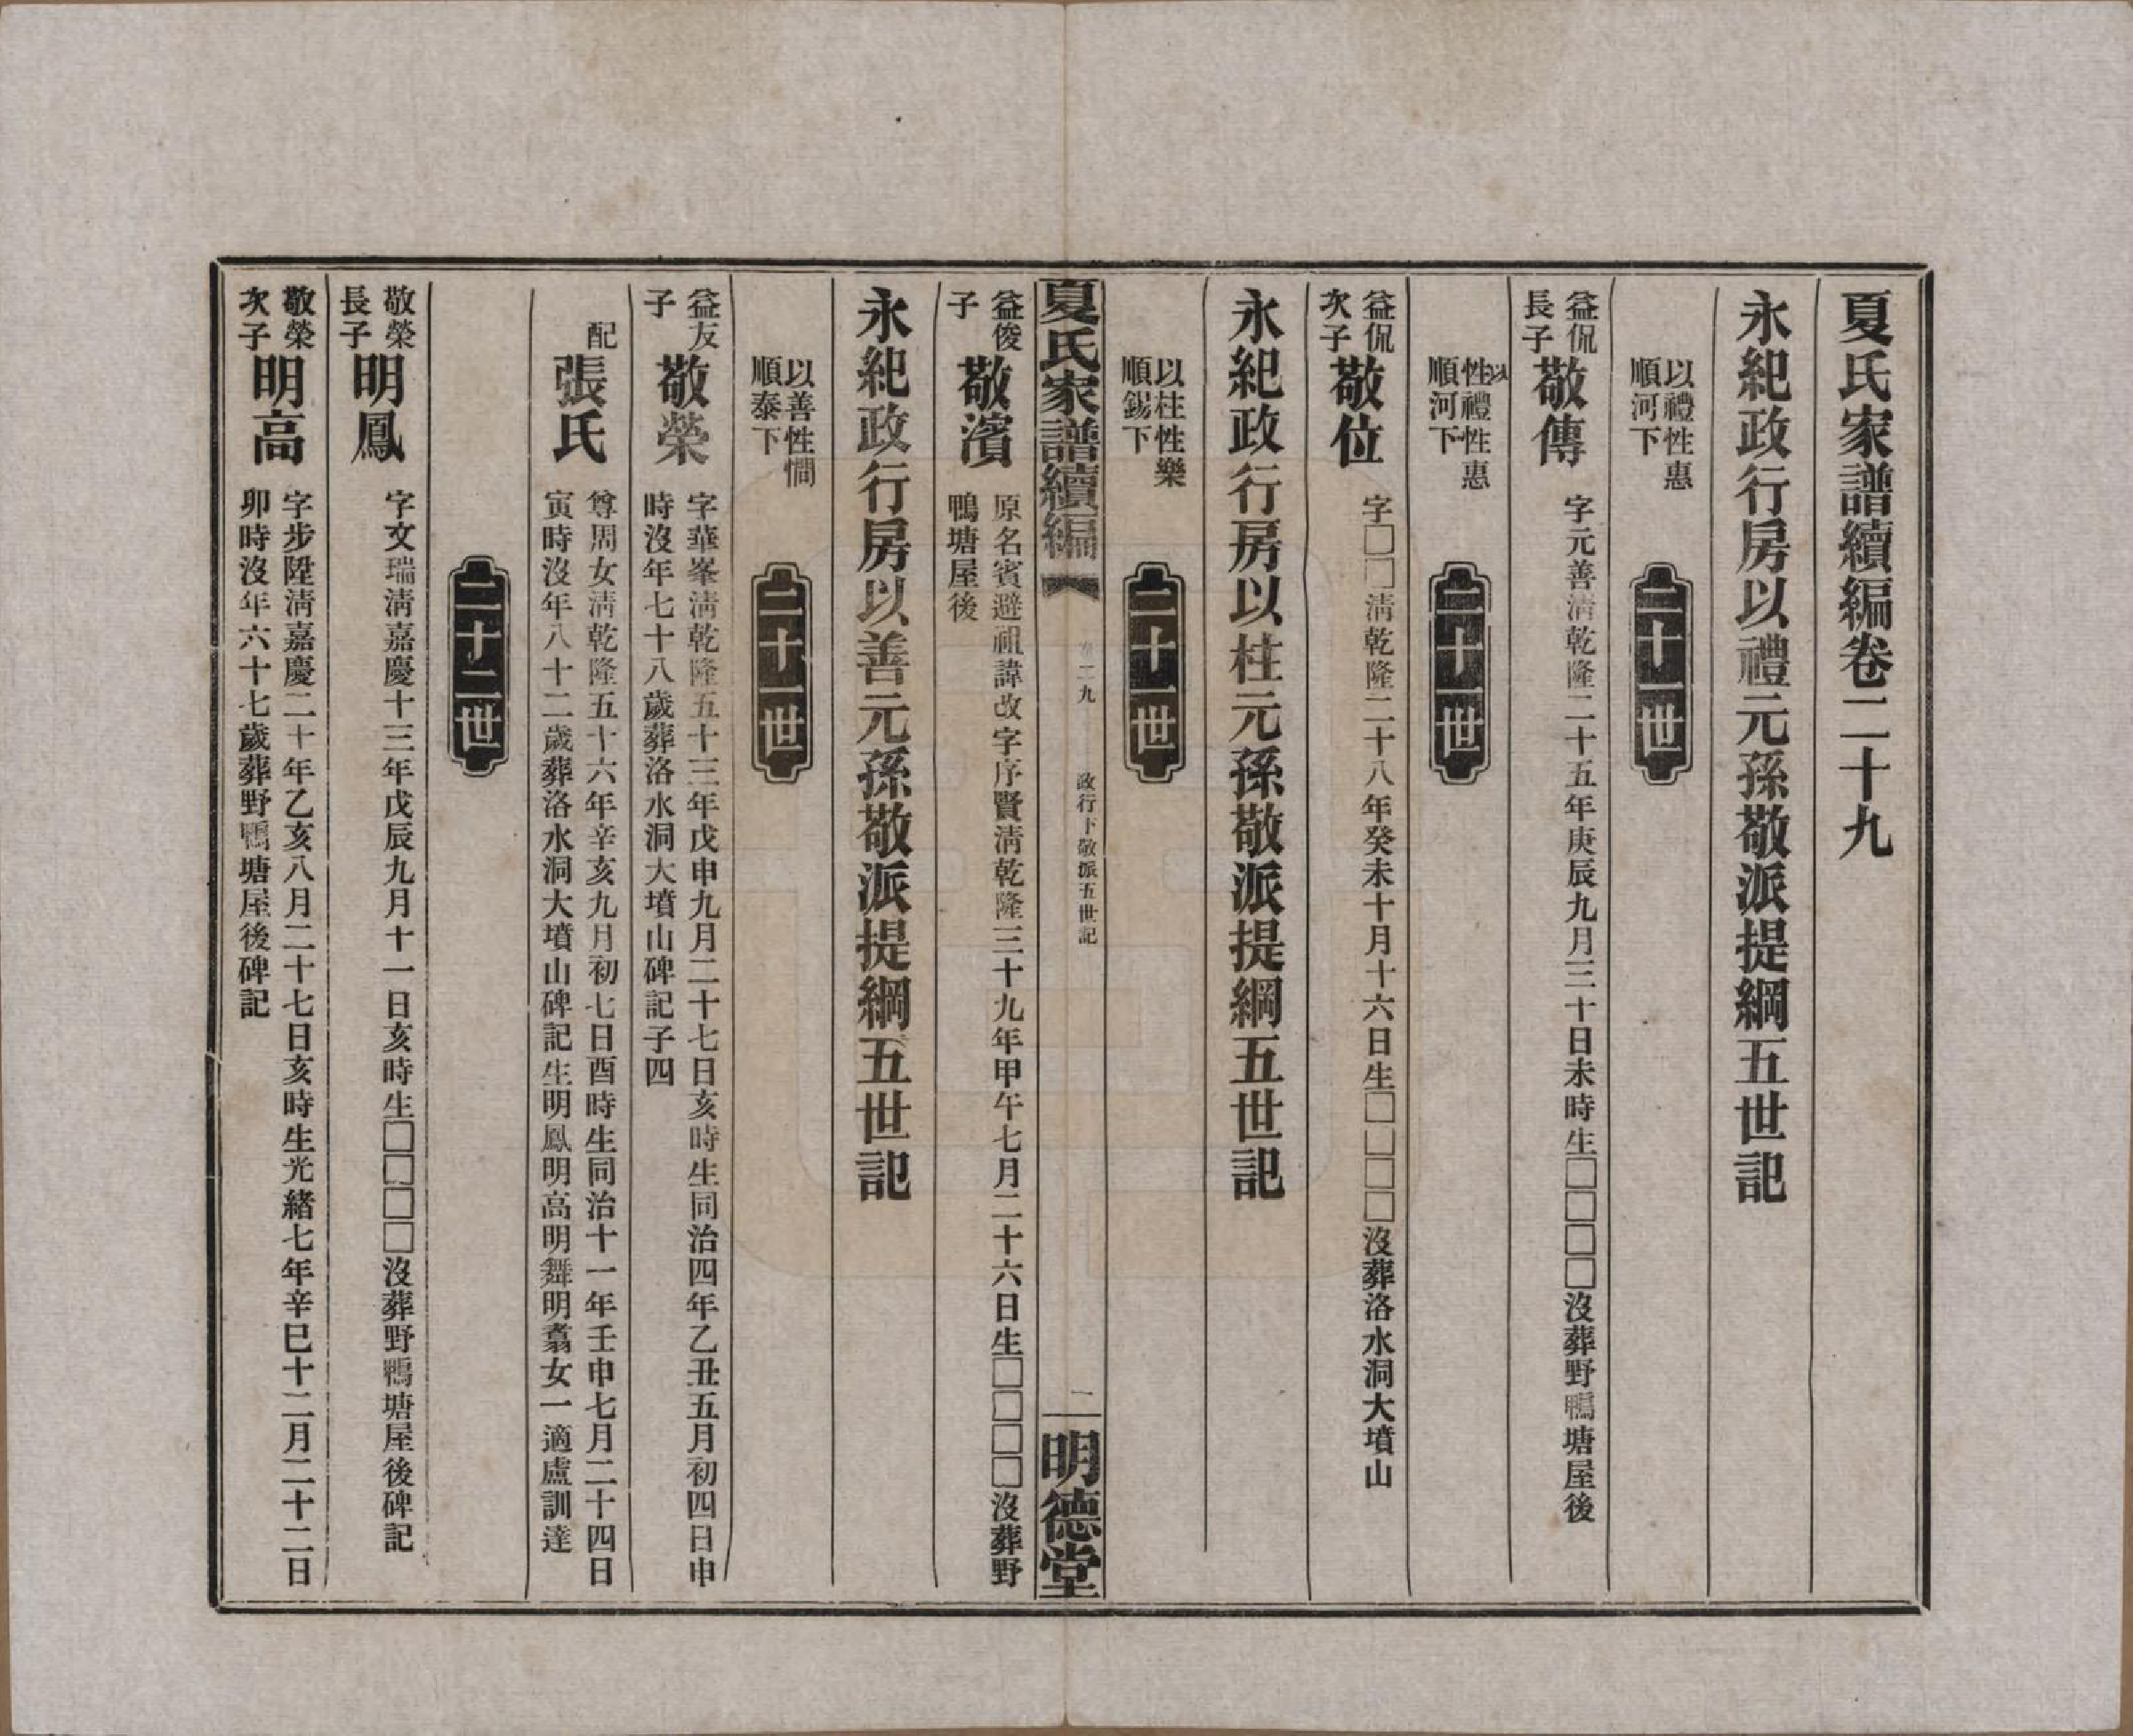 夏氏家譜續編卷二十九
永紀政行房以禮元孫敬派提綱五世記
以禮性惠
順河下
二十一世
益侃
長子
敬傳
字元善清乾隆二十五年庚辰九月三十日未時生□□□□沒葬野鴨塘屋後
以
性禮性惠
順河下
二十一世
益侃
次子
敬位
字□□清乾隆二十八年癸未十月十六日生□□□□沒葬洛水洞大墳山
永紀政行房以柱元孫敬派提綱五世記
以柱性樂
順錫下
二十一世
夏氏家譜續編
卷二九
政行下敬派五世記
二
明德堂
益俊
子
敬濱
原名賓避祖諱改字序賢清乾隆三十九年甲午七月二十六日生□□□□沒葬野
鴨塘屋後
永紀政行房以善元孫敬派提綱五世記
以善性憪
順泰下
二十一世
益友
子
敬榮
字華峯清乾隆五十三年戊申九月二十七日亥時生同治四年乙丑五月初四日申
時沒年七十八歲葬洛水洞大墳山碑記子四
配
張氏
尊周女清乾隆五十六年辛亥九月初七日酉時生同治十一年壬申七月二十四日
寅時沒年八十二歲葬洛水洞大墳山碑記生明鳳明高明舞明翥女一適盧訓達
二十二世
敬榮
長子
明鳳
字文瑞清嘉慶十三年戊辰九月十一日亥時生□□□□沒葬野鴨塘屋後碑記
敬榮
次子
明高
字步陞清嘉慶二十年乙亥八月二十七日亥時生光緒七年辛巳十二月二十二日
卯時沒年六十七歲葬野鴨塘屋後碑記